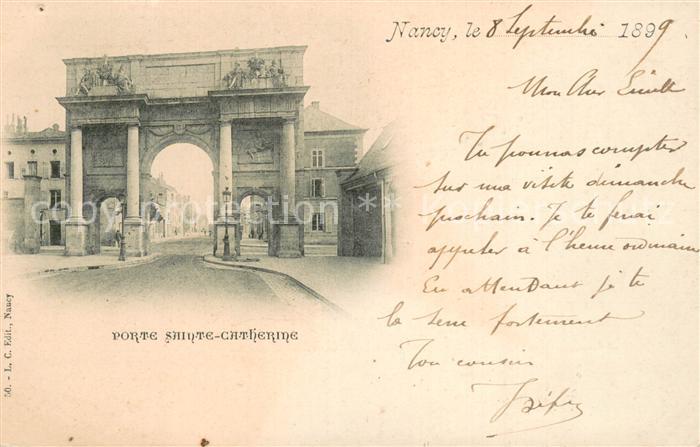 Nancy, le 8 Septembre 1899
Mon Cher
Tu pourras compter
sur ma visite dimanche
prochain. Je te ferai
appeler à l'heure ordinaire
En attendant je te
la serre fortement
Ton cousin
PORTE SAINTE-CATHERINE
50. - L. C. Edit., Nancy
copyright protection